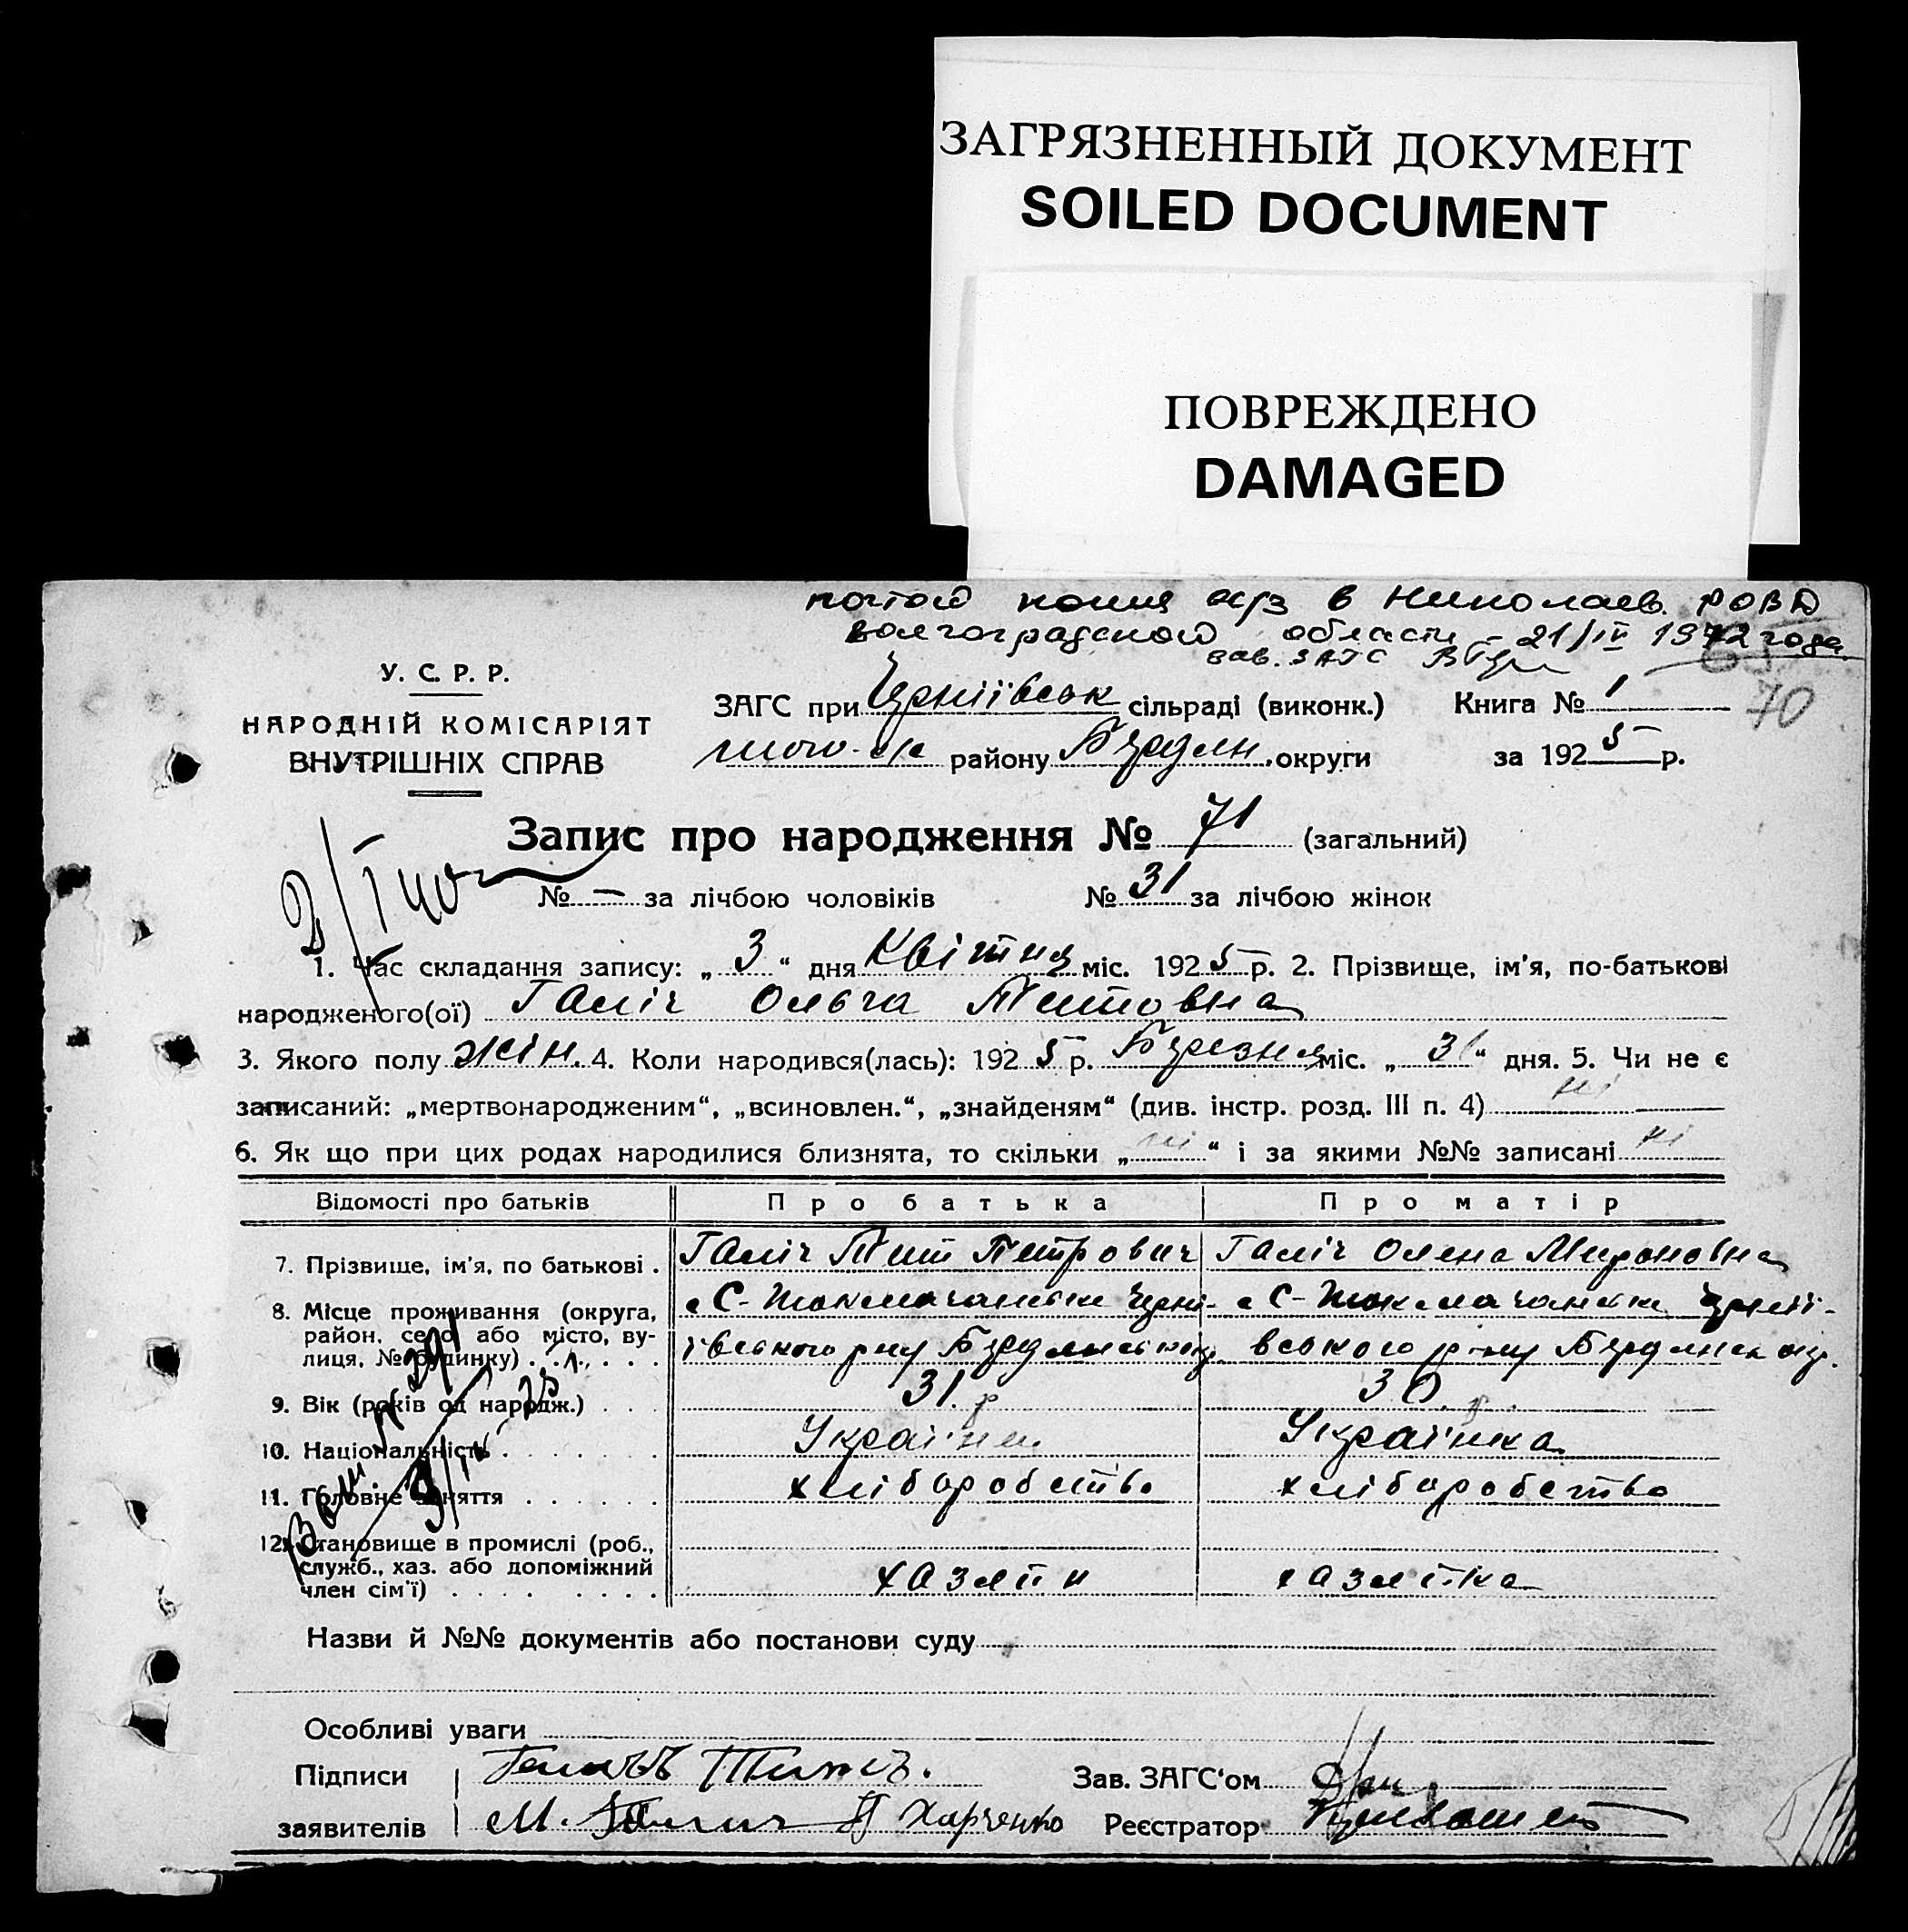 ЗАГРЯЗНЕННЫЙ ДОКУМЕНТ
SOILED DOCUMENT
ПОВРЕЖДЕНО
DAMAGED
копия в Николаев. РОВД
Волгоградской области - 21/IV 1972 года
зав. ЗАГС
70
У. С. Р. Р.
НАРОДНІЙ КОМІСАРІЯТ
ВНУТРІШНІХ СПРАВ
ЗАГС при Черніївськ сільраді (виконк.) Книга № 1
району Бердян. округи за 1925 р.
Запис про народження № 71 (загальний)
№ — за лічбою чоловіків № 31 за лічбою жінок
1. Час складання запису: „ 3 “ дня Квітня міс. 1925 р. 2. Прізвище, ім'я, по-батькові
народженого(ої) Галіч Ольга Титовна
3. Якого полу жін. 4. Коли народився(лась): 1925 р. Березня міс. „ 31 “ дня. 5. Чи не є
записаний: „мертвонародженим“, „всиновлен.“, „знайденям“ (див. інстр. розд. III п. 4) ні
6. Як що при цих родах народилися близнята, то скільки „ ні “ і за якими №№ записані ні
Відомості про батьків Про батька Про матір
7. Прізвище, ім'я, по батькові . Галіч Тит Петрович Галіч Олена Мироновна
8. Місце проживання (округа,
район, село або місто, ву-
лиця, № будинку) . . . . . .
с С-Токмачанськ Черні- с С-Токмачанськ Черніі-
ївського р-ну Бердянськ окр. вського р-ну Бердянськ окр.
9. Вік (років од народж.) . . . 31. р 30. р.
10. Національність . . . . . . Українец Українка
11. Головне заняття . . . . . . хліборобство хліборобство
12. Становище в промислі (роб.,
служб., хаз. або допоміжний
член сім'ї) . . . . . . . .
хазяїн хазяїка
Назви й №№ документів або постанови суду
Особливі уваги
Підписи Зав. ЗАГС'ом
заявителів М. Галич П Харченко Реєстратор